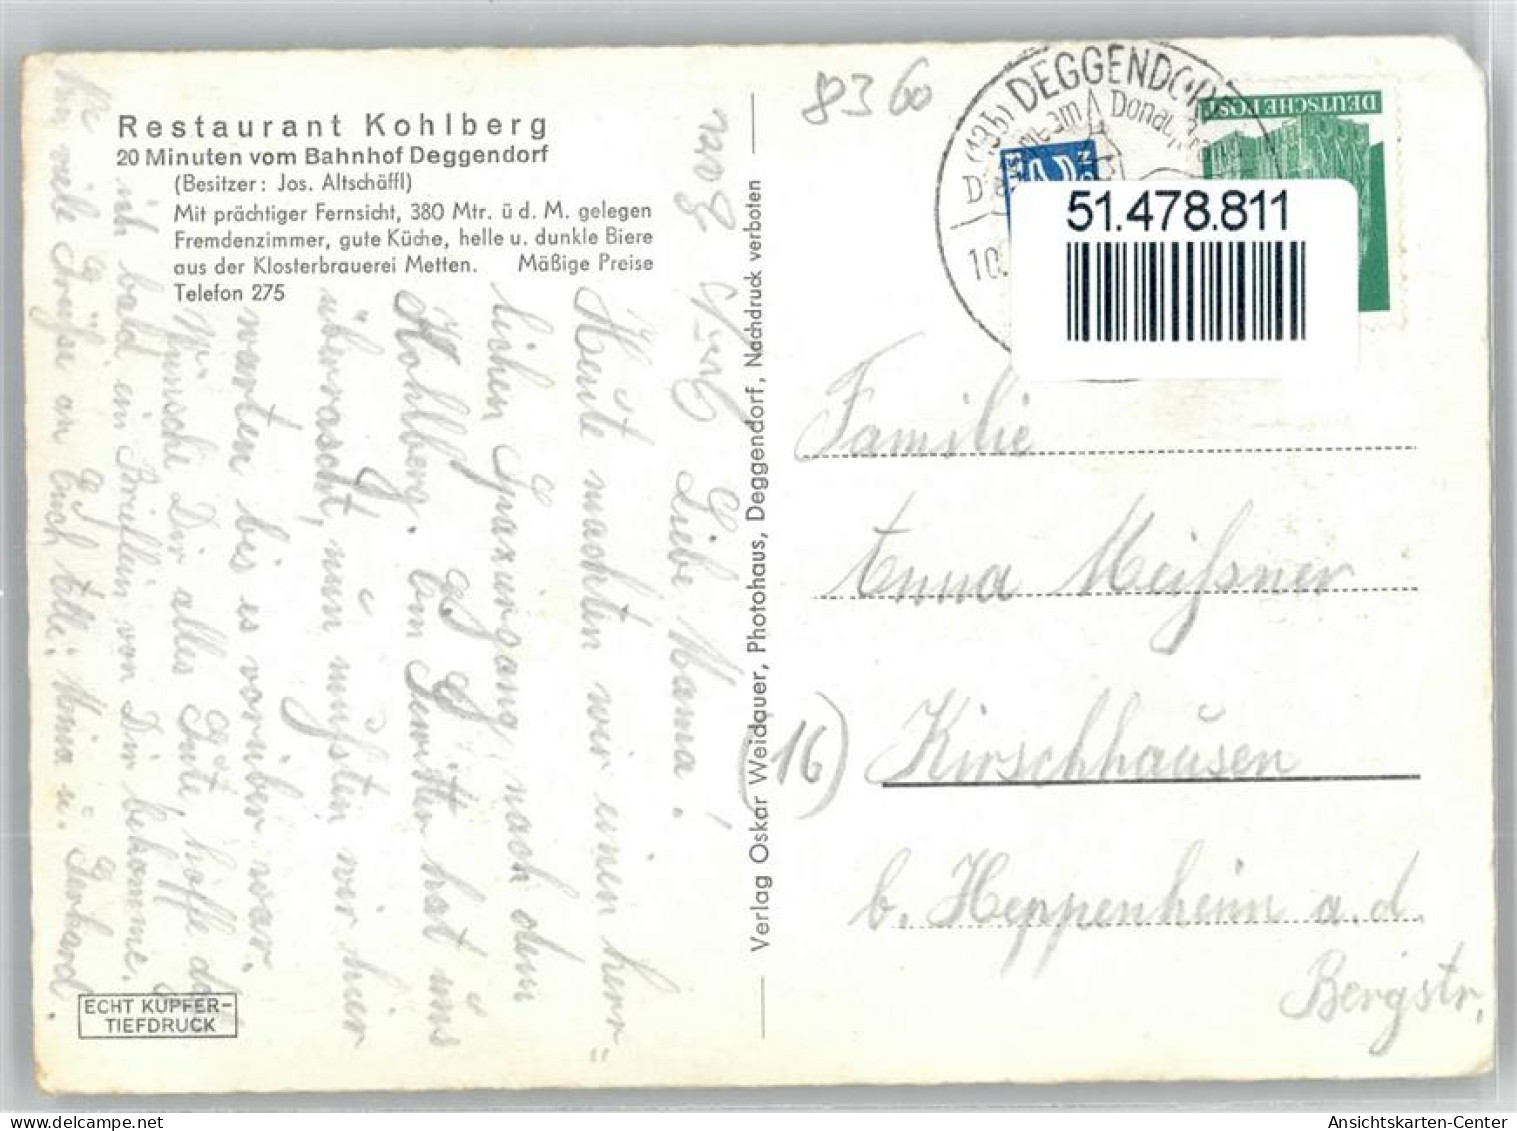 8360
Restaurant Kohlberg
20 Minuten vom Bahnhof Deggendorf
(Besitzer: Jos. Altschäffl)
Mit prächtiger Fernsicht, 380 Mtr. ü d. M. gelegen
Fremdenzimmer, gute Küche, helle u. dunkle Biere
aus der Klosterbrauerei Metten. Mäßige Preise
Telefon 275
Liebe Mama!
Heute machten wir einen herr=
lichen Spaziergang nach dem
Kohlberg. Ein Gewitter hat uns
überrascht, nun müssten wir hier
warten bis es vorüber war.
Wünsche Dir alles Gute, hoffe
ich bald ein Brieflein von Dir bekomme.
viele Grüße an Euch alle; u. Gerhard.
ECHT KUPFER-
TIEFDRUCK
Verlag Oskar Weidauer, Photohaus, Deggendorf, Nachdruck verboten
(13b) DEGGENDORF
Donau
10.
DEUTSCHE POST
51.478.811
Familie
Anna Meißner
(16) Kirschhausen
b. Heppenheim a. d.
Bergstr.
Ansichtskarten-Center